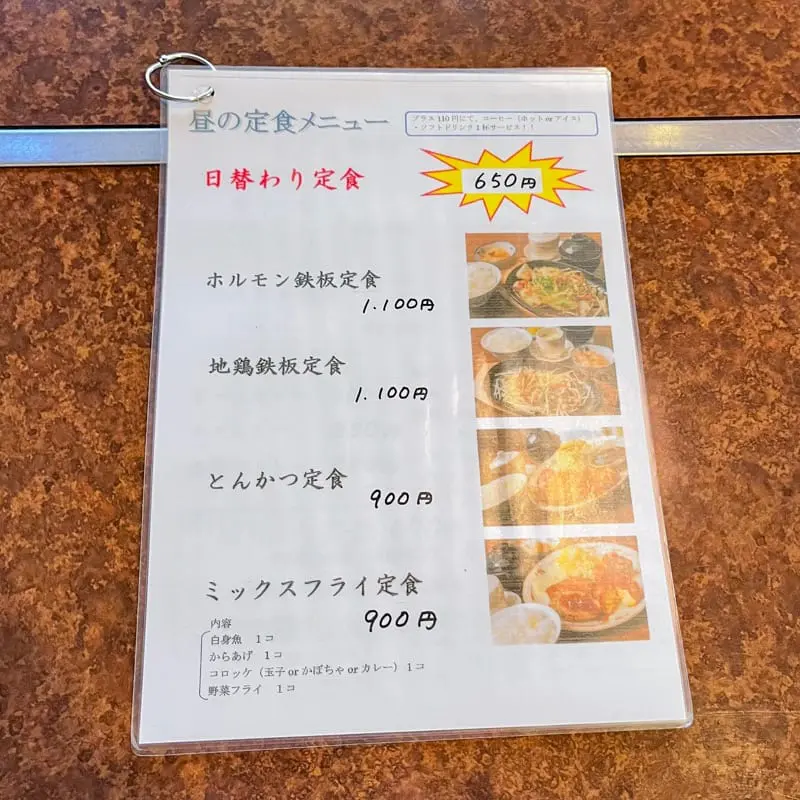 昼の定食メニュー
プラス110円にて、コーヒー（ホット or アイス）
・ソフトドリンク1杯サービス！！
日替わり定食
650円
ホルモン鉄板定食
1.100円
地鶏鉄板定食
1.100円
とんかつ定食
900円
ミックスフライ定食
900円
内容
白身魚　1コ
からあげ　1コ
コロッケ（玉子 or かぼちゃ or カレー）1コ
野菜フライ　1コ